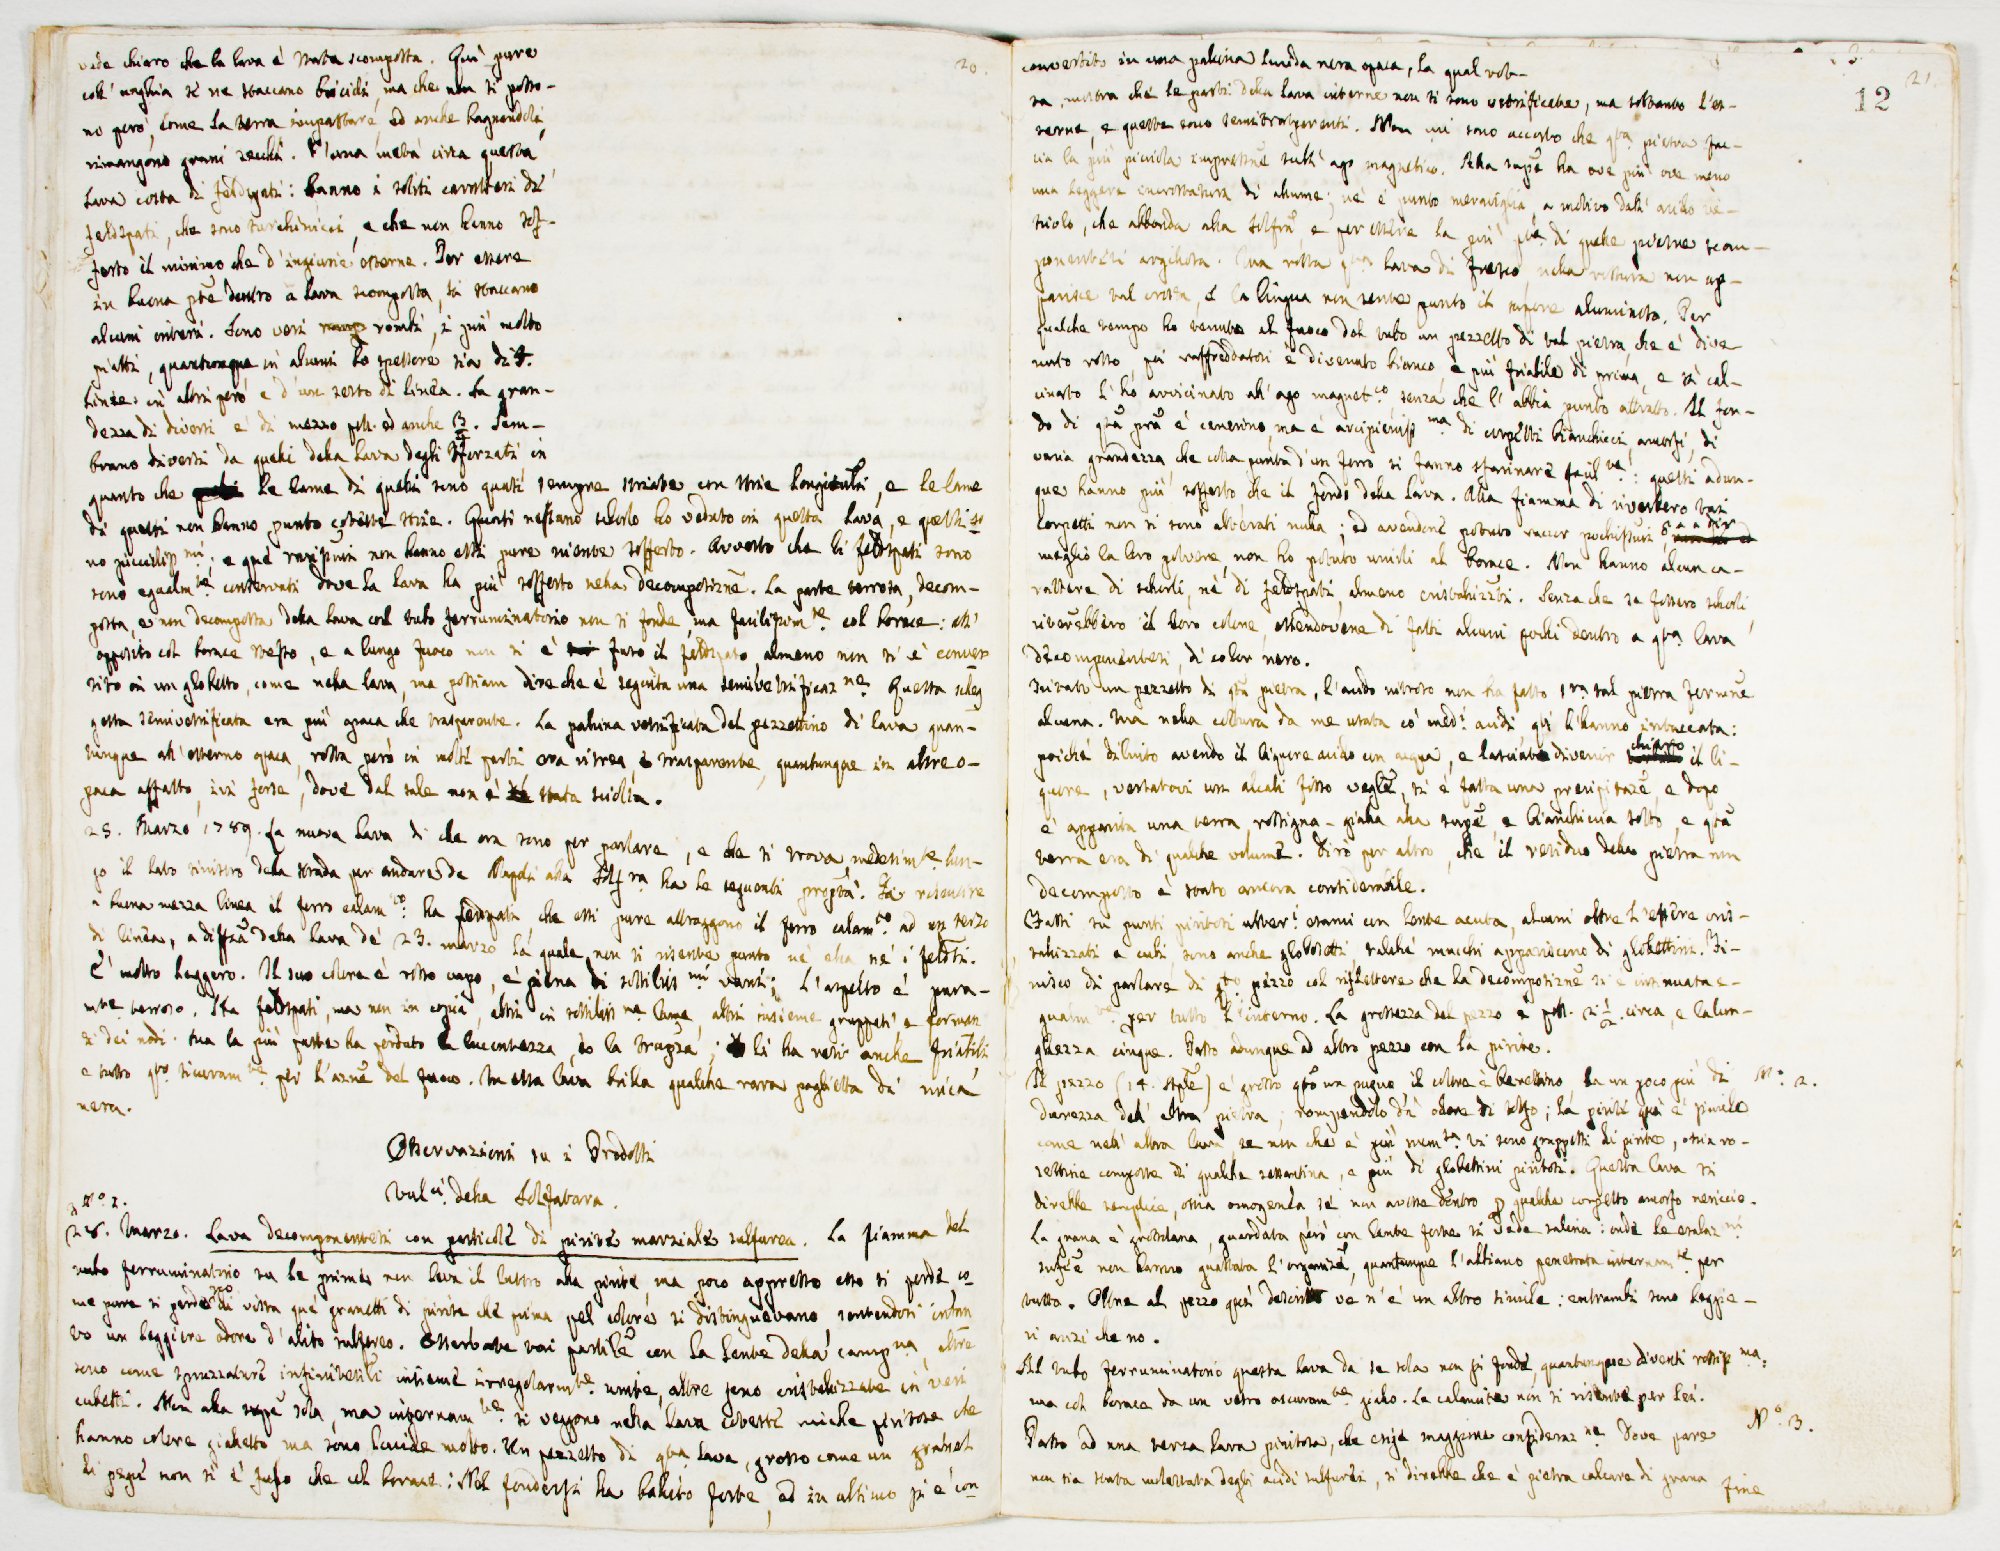 20.
vede chiaro che la lava è stata scomposta. Qui pure
coll' unghia se ne staccano briccioli, ma che non si posso-
no però, come la terra impastare, ed anche bagnandoli,
rimangono grani secchi. D'una metà circa questa
Lava costa di feldspati: hanno i soliti caratteri di
feldspati, che sono turchinicci, e che non hanno sof-
ferto il minimo che d'ingiurie esterne. Per essere
in buona pte dentro a lava scomposta, si staccano
alcuni interi. Sono veri rombi, i più molto
piatti, quantunque in alcuni lo spessore sia di
linee: in altri però è d'un sesto di linea. La gran-
dezza di diversi è di mezzo poll. ed anche. Sem-
brano diversi da quelli della Lava degli Sforzati in
quanto che le lame di quelli sono quasi sempre striate con strie longitudli, e le lame
di questi non hanno punto coteste strie. Quasi nessuno scherlo ho veduto in questa Lava, e questi so
no piccoliss.mi; e qué rarissimi non hanno essi pure niente sofferto. Avverto che li feldspati sono
sono egualm.te conservati dove la lava ha più sofferto nella decompotizne. La parte terrosa, decom-
posta, e non decomposta della lava col tubo ferruminatorio non si fonde, ma facilissim.te col borace: all'
opposito col borace stesso, e a lungo fuoco non si è fuso il feldspato, almeno non si è conver
tito in un globetto, come nella lava, ma possiam dire che è seguita una semivetrificaz.ne. Questa scheg
getta semivetrificata era più opaca, che trasparente. La patina vetrificata del pezzettino di lava quan-
tunque all' esterno opaca, rotta però in molte parti era vitrea, e trasparente, quantunque in altre o-
paca affatto, ivi forse, dove dal sale non è stata sciolta.
28. Marzo 1789. La nuova lava di che ora sono per parlare, e che si trova medesim.te lun-
go il lato sinistro della strada per andare da Napoli alla Solf.ra ha le seguenti proptà. Fa risentire
a buona mezza linea il ferro calam.to: ha feldspati che essi pure attraggono il ferro calam.to ad un terzo
di linea, a diffza della lava de' 23. marzo la quale non si risente punto nè ella nè i feldsti.
È molto leggero. Il suo colore è rosso cupo, è piena di sottiliss.mi vani; l'aspetto è pura-
mte terroso. Ha feldspati, ma non in copia, altri in sottiliss.me lame, altri insieme gruppati e forman
ti dei nodi. Ma la più parte ha perduto la lucentezza, e la; li ha resi anche friabili
e tutto qto sicuram.te per l'azne del fuoco. In essa lava brilla qualche rara paglietta di mica
nera.
Osservazioni su i Prodotti
Vulci. della Solfatara.
N.° 1.
28. Marzo. Lava decomponentesi con particole di pirite marziale sulfurea. La fiamma del
tubo ferruminatorio su le prime non leva il lustro alla pirite, ma poco appresso esso si perde, co
me pure si perdono di vista qué granetti di pirite che prima pel colore si distinguevano sentendosi intan
to un leggiere odore d'alito sulfureo. Osservate tai partile con la lente della campna, altre
sono come spruzzature infinitesili insieme irregolarm.te unite, altre sono cristallizzate in veri
cubetti. Non alla supe sola, ma internam.te si veggono nella lava coteste miche piritose che
hanno colore gialletto ma sono lucide molto. Un pezzetto di qta lava, grosso come un granel
di pepe non si è fuso che col borace: Nel fondersi ha bollito forte, ed in ultimo si è con
21.
12
convertito in una patina lucida nera opaca, la qual rot-
ta, mostra che le parti della lava interne non si sono vetrificate, ma soltanto l'es-
terne, e queste sono semitrasparenti. Non mi sono accorto che qta pietra fac-
cia la più piccola impressne sull' ago magnetico. Alla supe ha ove più ove meno
una leggera incrostatura di alume; nè è punto meraviglia, a motivo dell' acido ve-
triolo, che abbonda alla Solfra, e per essere la più pte di quelle pietre scom-
ponentisi argillosa. Ma rotta qta lava di fresco nella rottura non ap-
parisce tal crosta, e la lingua non sente punto il sapore aluminoso. Per
qualche tempo ho tenuto al fuoco del tubo un pezzetto di tal pietra, che è dive
nuto rosso, poi raffreddatosi è divenuto bianco, e più friabile di prima, e sì cal-
cinato l' ho avvicinato all' ago magnet.co senza che l' abbia punto attratto. Il fon-
do di qta pra è cenerino, ma è arcipieniss.ma di corpetti bianchicci, amorfi, di
varia grandezza che colla punta d'un ferro si fanno sfarinare facil.te: questi adun-
que hanno più sofferto che il fondo della lava. Alla fiamma di riverbero tai
corpetti non si sono alterati nulla; ed avendone potuto raccor pochissimi, o a dir
meglio la loro polvere, non ho potuto unirli al borace. Non hanno alcun ca-
rattere di scherli, nè di feldspati, almeno cristallizzti. Senza che se fossero scherli
riterebbero il loro colore, essendovene di fatti alcuni pochi dentro a qta lava
decomponentesi, di color nero.
Tuffato un pezzetto di qta pietra, l' acido nitroso non ha fatto sra tal pietra fermzne
alcuna. Ma nella coltura da me usata co' med.i acidi, qti l' hanno intaccata:
poiché diluito avendo il liquore acido con acqua, e lasciato divenir chiaro il li-
quore, versatovi un alcali fisso vegle, si è fatta una precipitaze, e dopo
è apparita una terra rossigna-gialla alla supe, e bianchiccia sotto, e qta
terra era di qualche volume. Dirò per altro, che il residuo della pietra non
decomposto è stato ancora considerabile.
Fatti su punti piritosi ulteri esami con lente acuta, alcuni oltre l' essere cris-
tallizzati a cubi, sono anche globosetti, talché mucchi appariscono di globettini. Fi-
nisco di parlare di qto pezzo col riflettere che la decompotizne si è insinuata e-
gualm.te per tutto l' interno. La grossezza del pezzo è poll. 2 1/2 circa, e la lun-
ghezza cinque. Passo adunque ad altro pezzo con la pirite.
N.° 2.
Il pezzo (14. Aple) è grosso qto un pugno il colore è berettino, ha un poco più di
durezza dell' altra pietra; rompendolo dà odore di solfo; la pirite qui è simile
come nell' altra lava, se non che è più num.sa. Vi sono gruppetti di pirite, ossia ro-
settine composte di qualche sessantina, e più di globettini piritosi. Questa lava si
direbbe semplice, ossia omogenea se non avesse dentro qualche corpetto amorfo nericcio.
La grana è grossolana, guardata però con lente forte si vede salina: onde le esalaz.ni
sulfe non hanno guastata l' organize, quantunque l' abbiano penetrata internam.te per
tutto. Oltre al pezzo qui descritto ve n' è un altro simile: entrambi sono leggie-
ri anzi che no.
Al tubo ferruminatorio questa lava da se sola non si fonde, quantunque diventi rossiss.ma:
ma col borace da un vetro oscuram.te giallo. La calamita non si risente per lei.
N.° 3.
Passo ad una terza lava piritosa, che esige maggiore consideraz.ne. Dove pare
non sia stata molestata degli acidi sulfurei, si direbbe che è pietra calcare di grana
fine